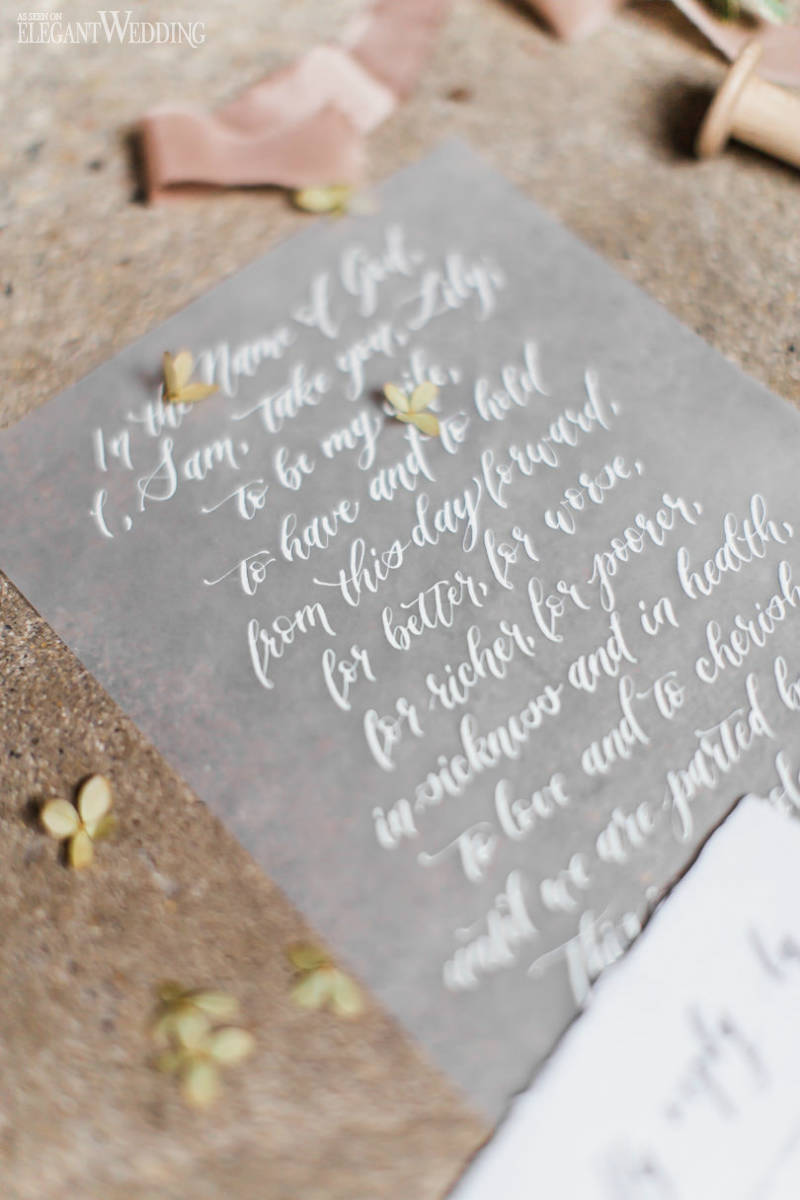 AS SEEN ON
ELEGANTWEDDING
In the Name of God,
I, Sam, take you, Lily,
to be my wife,
to have and to hold
from this day forward,
for better, for worse,
for richer, for poorer,
in sickness and in health,
to love and to cherish
until we are parted
This